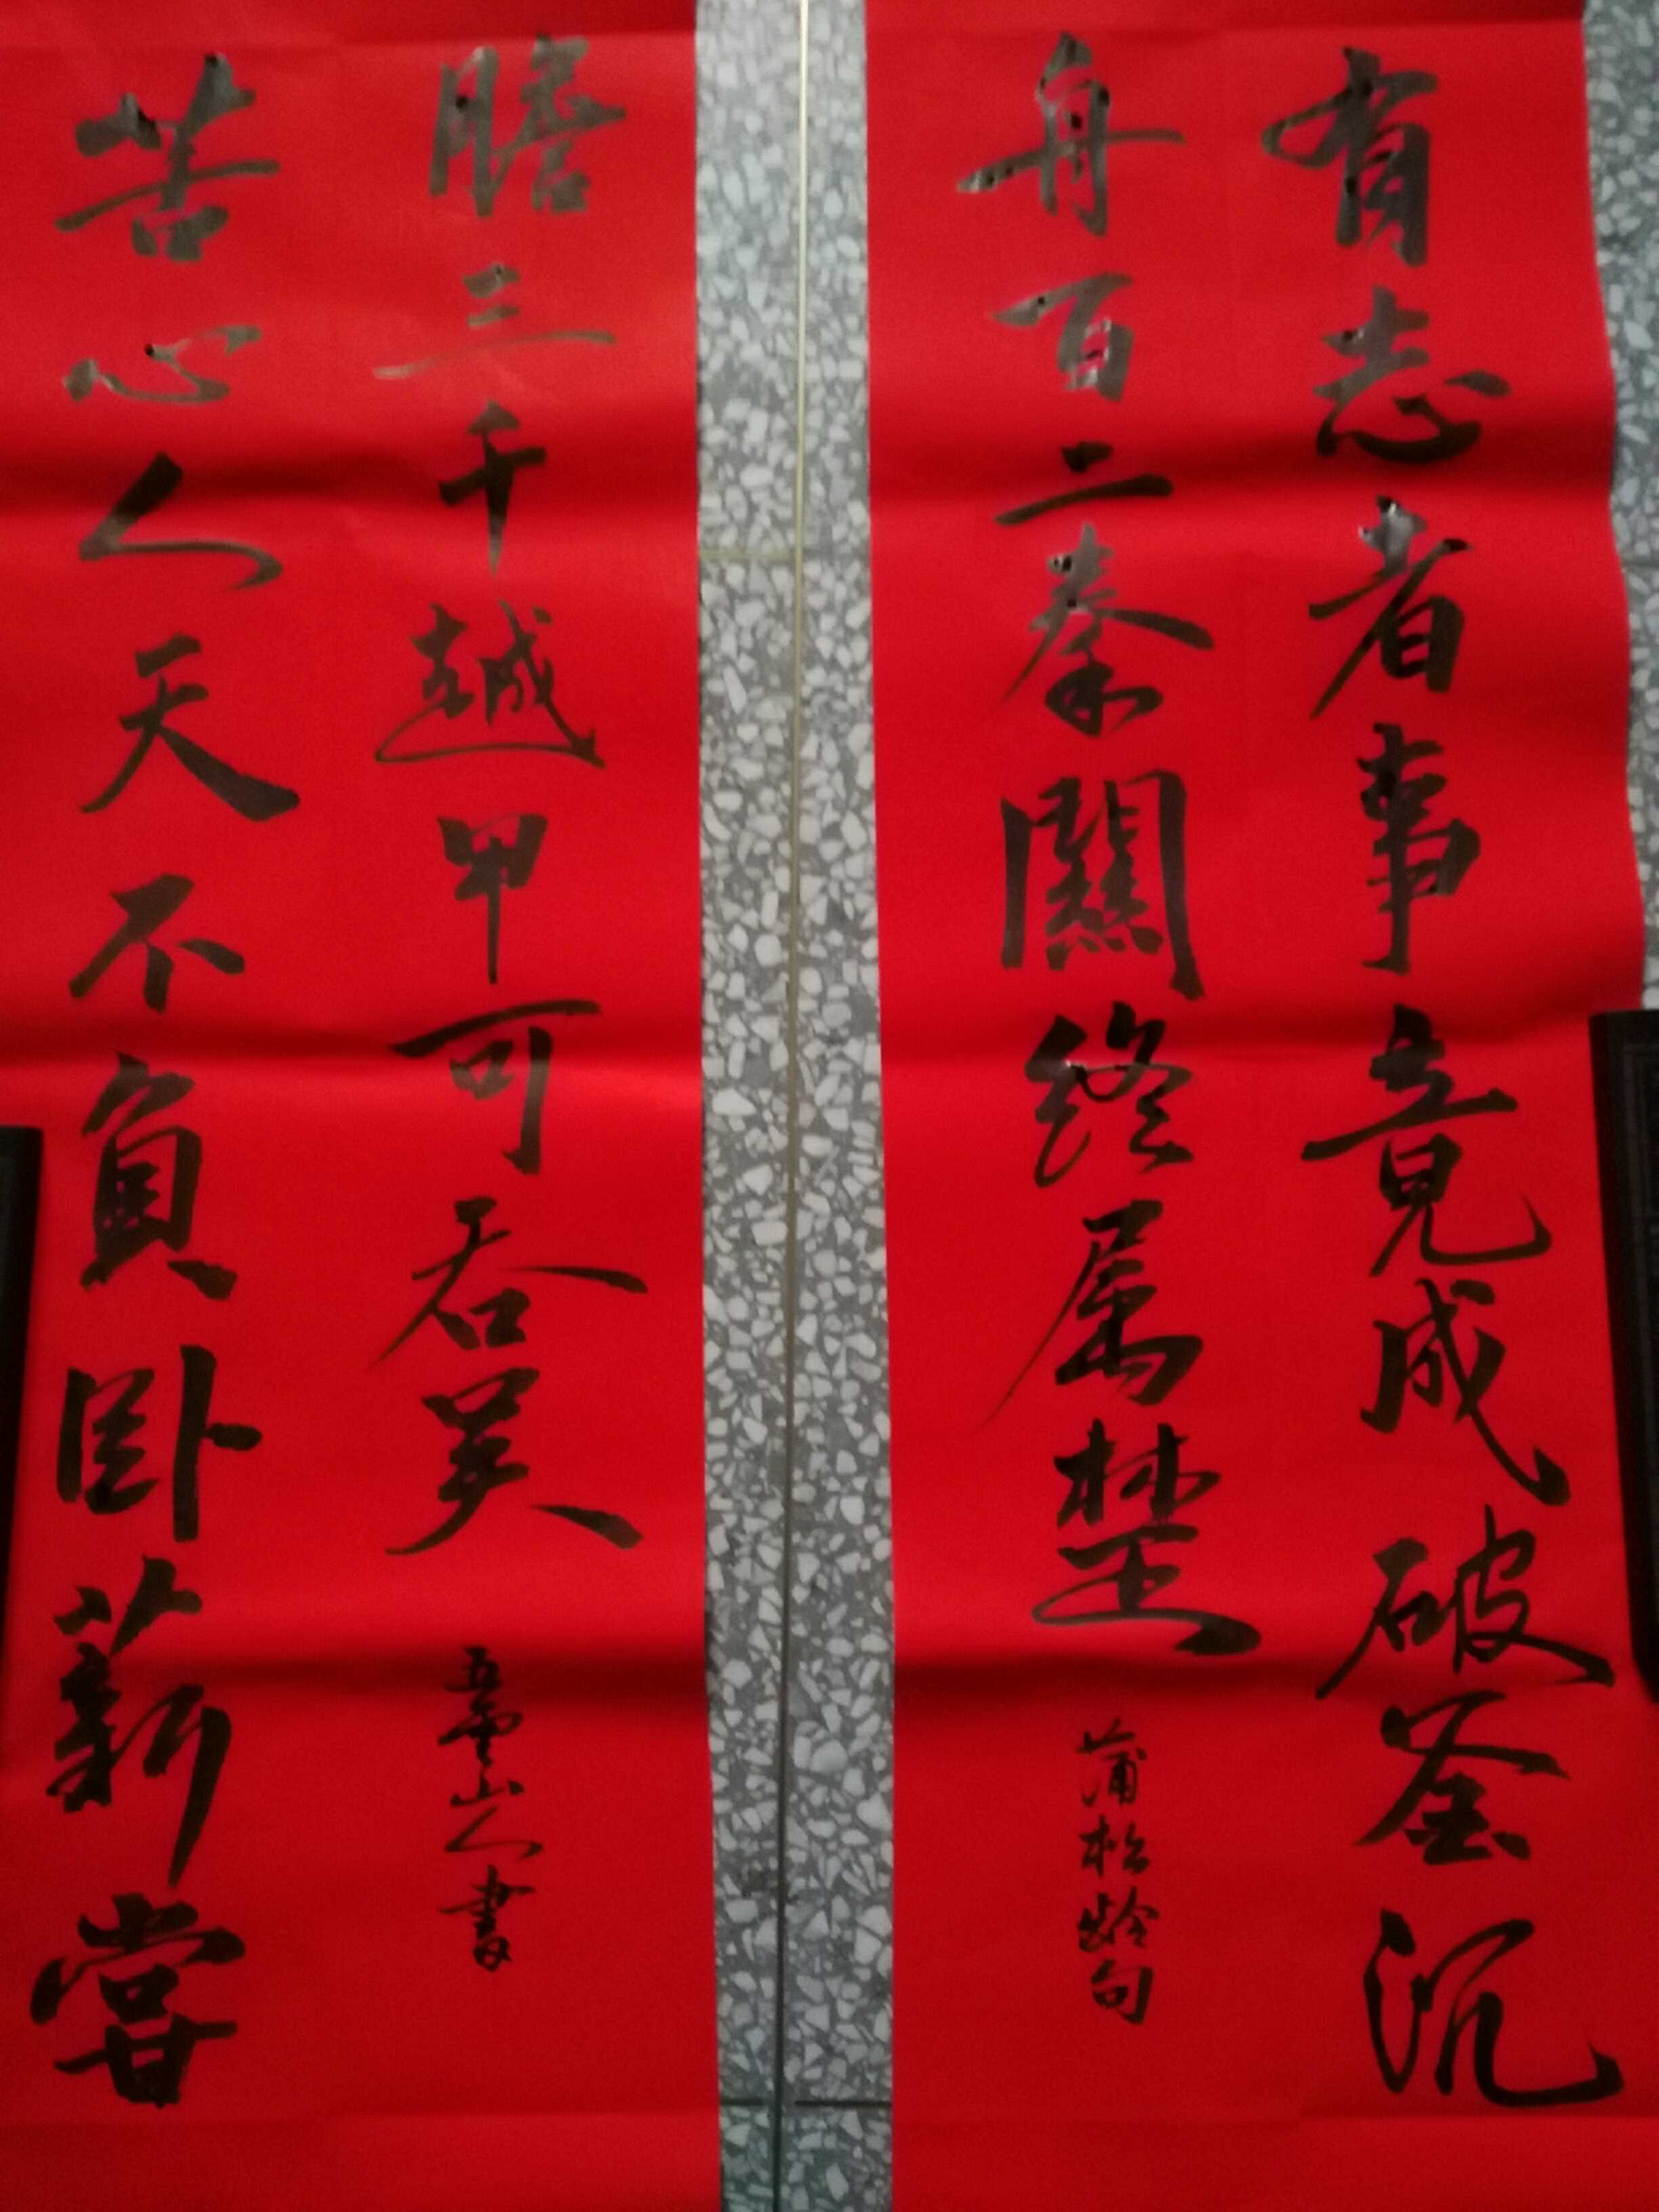 有志者事竟成破釜沉
舟百二秦關終属楚
蒲松齡句
苦心人天不負卧薪甞
膽三千越甲可吞吴
五雲山人書